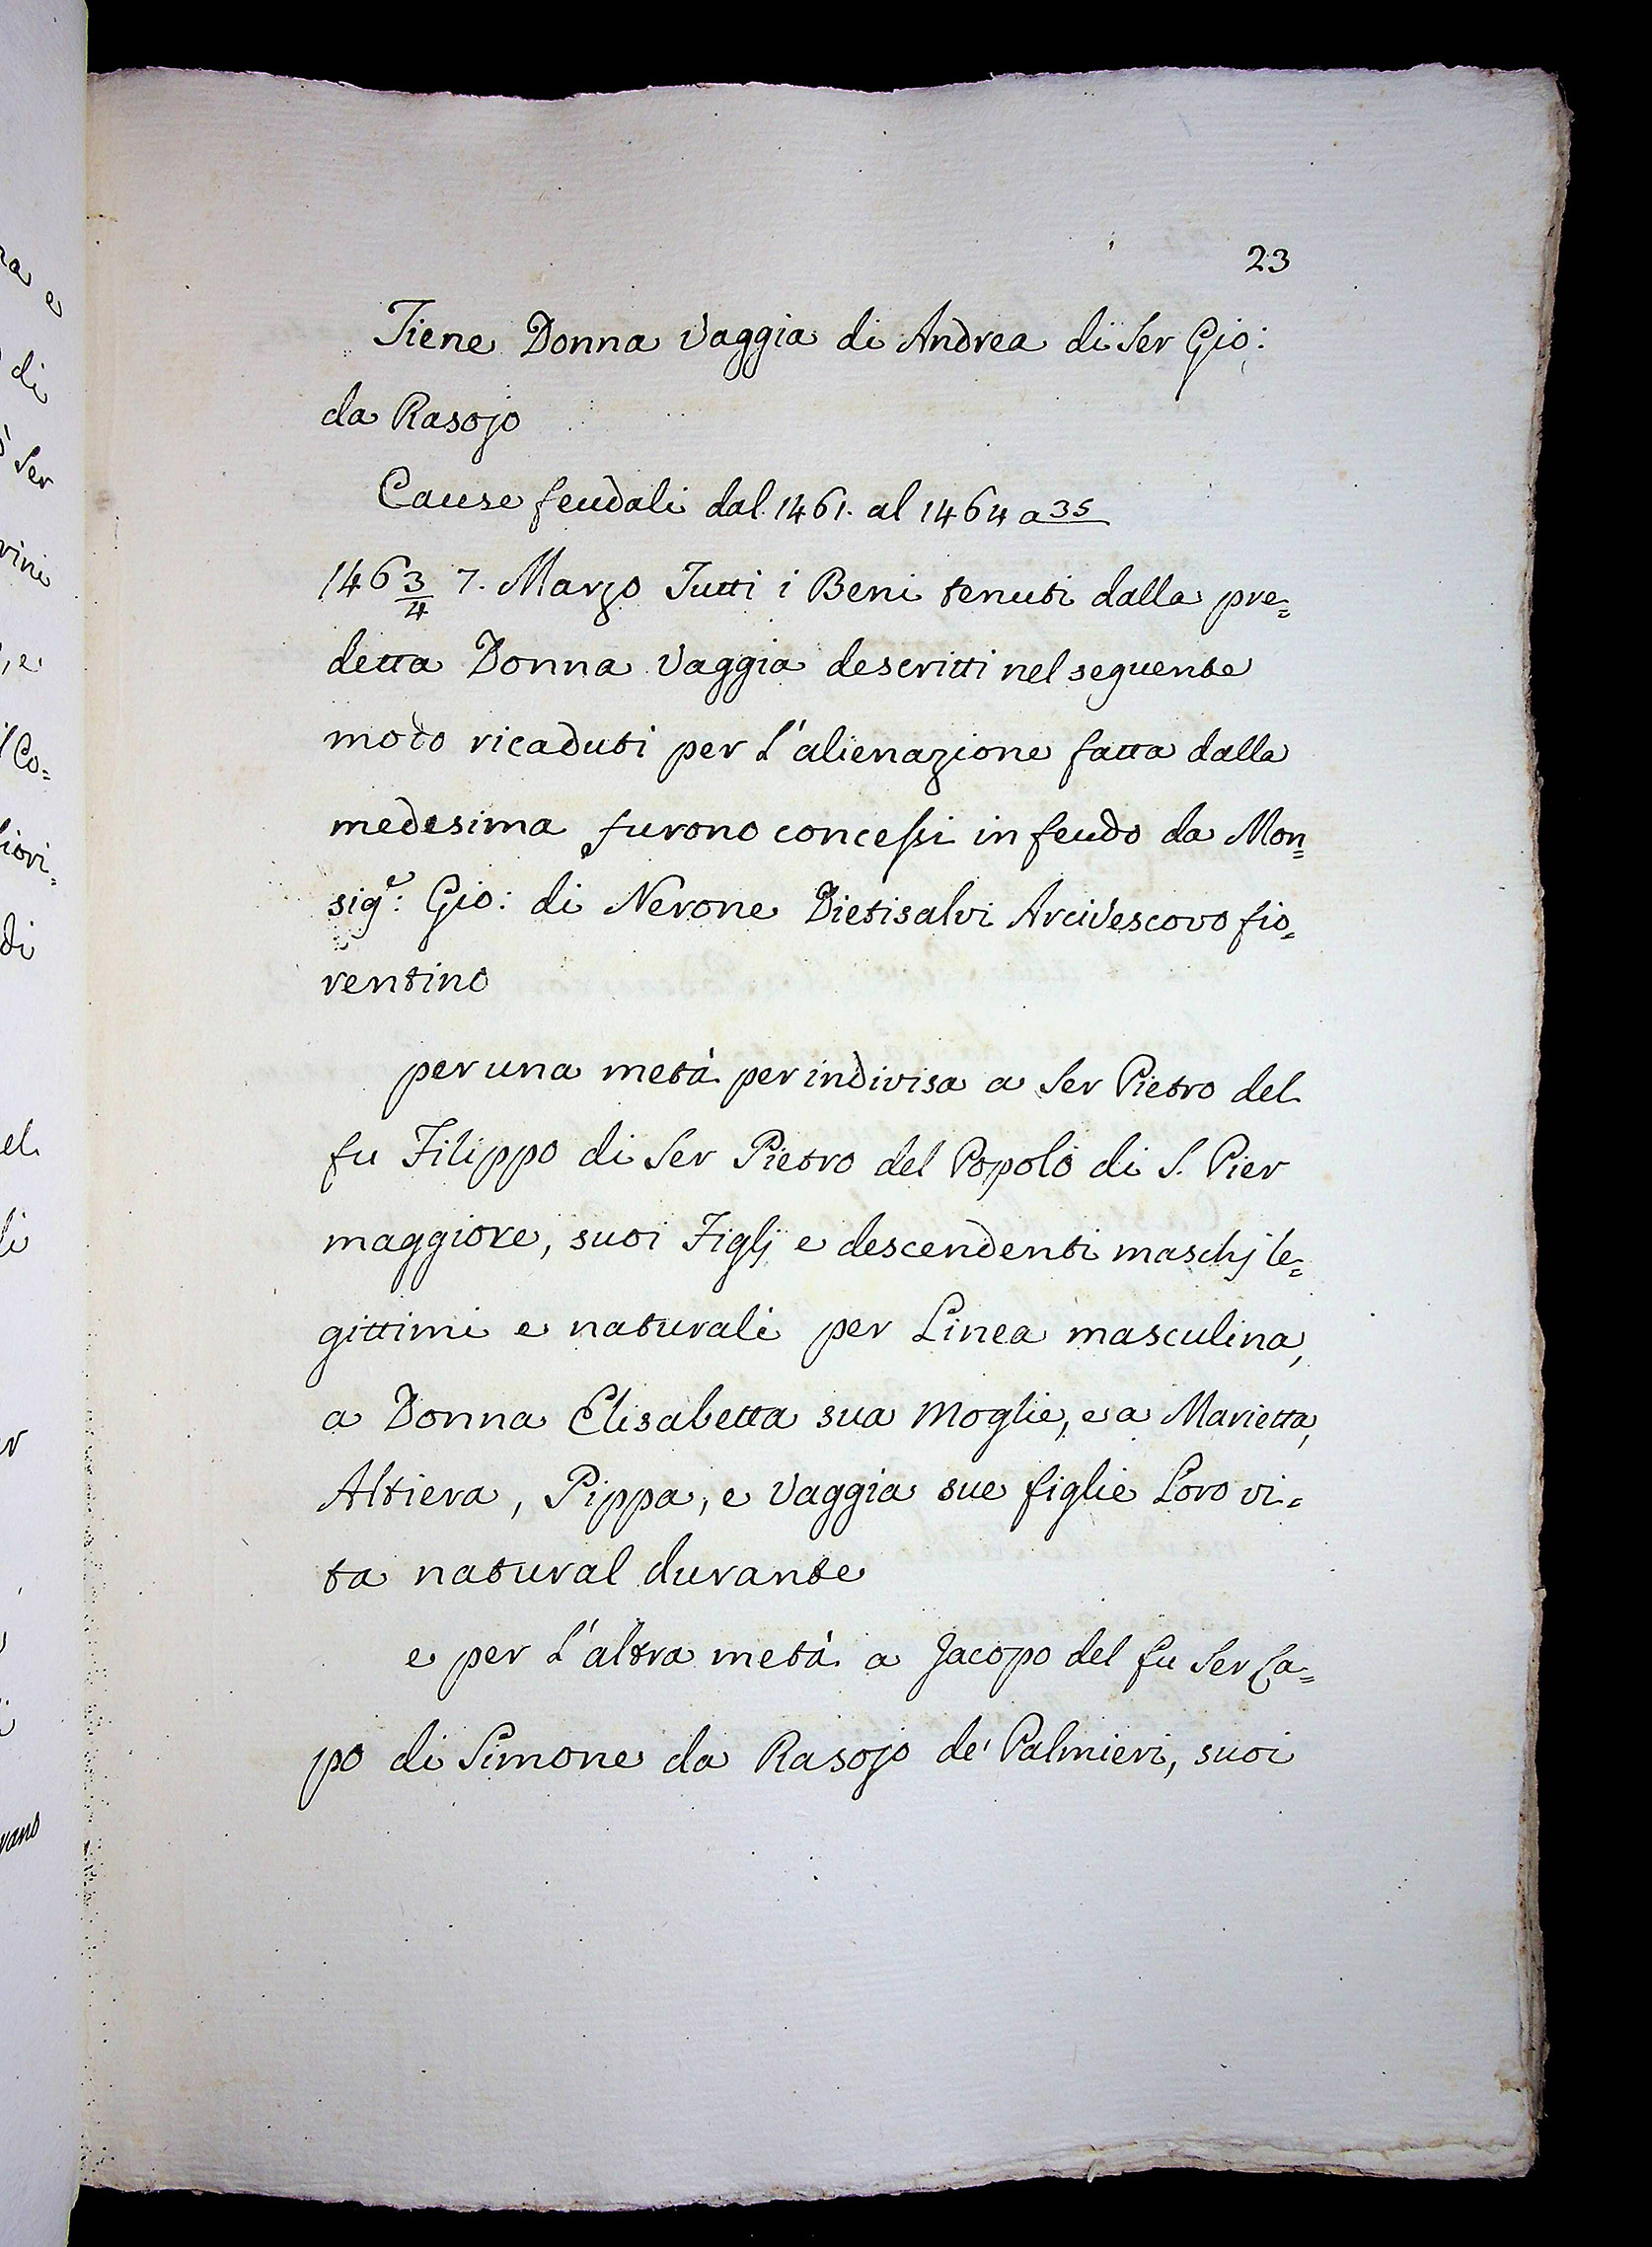 23
Tiene Donna Vaggia di Andrea di Ser Gio:
da Rasojo
Cause feudali dal 1461. al 1464 a 35
146 3/4 7. Marzo Tutti i Beni tenuti dalla pre=
detta Donna Vaggia descritti nel seguente
modo ricaduti per l'alienazione fatta dalla
medesima furono concessi in feudo da Mon=
sigr: Gio: di Nerone Dietisalvi Arcivescovo fio=
rentino
per una metà per indivisa a Ser Pietro del
fu Filippo di Ser Pietro del Popolo di S. Pier
maggiore, suoi Figlj e descendenti maschj le=
gittimi e naturali per Linea masculina,
a Donna Elisabetta sua Moglie, e a Marietta,
Altiera, Pippa, e Vaggia sue figlie Loro vi=
ta natural durante
e per l'altra metà a Jacopo del fu Ser La=
po di Simone da Rasojo de' Palmieri, suoi